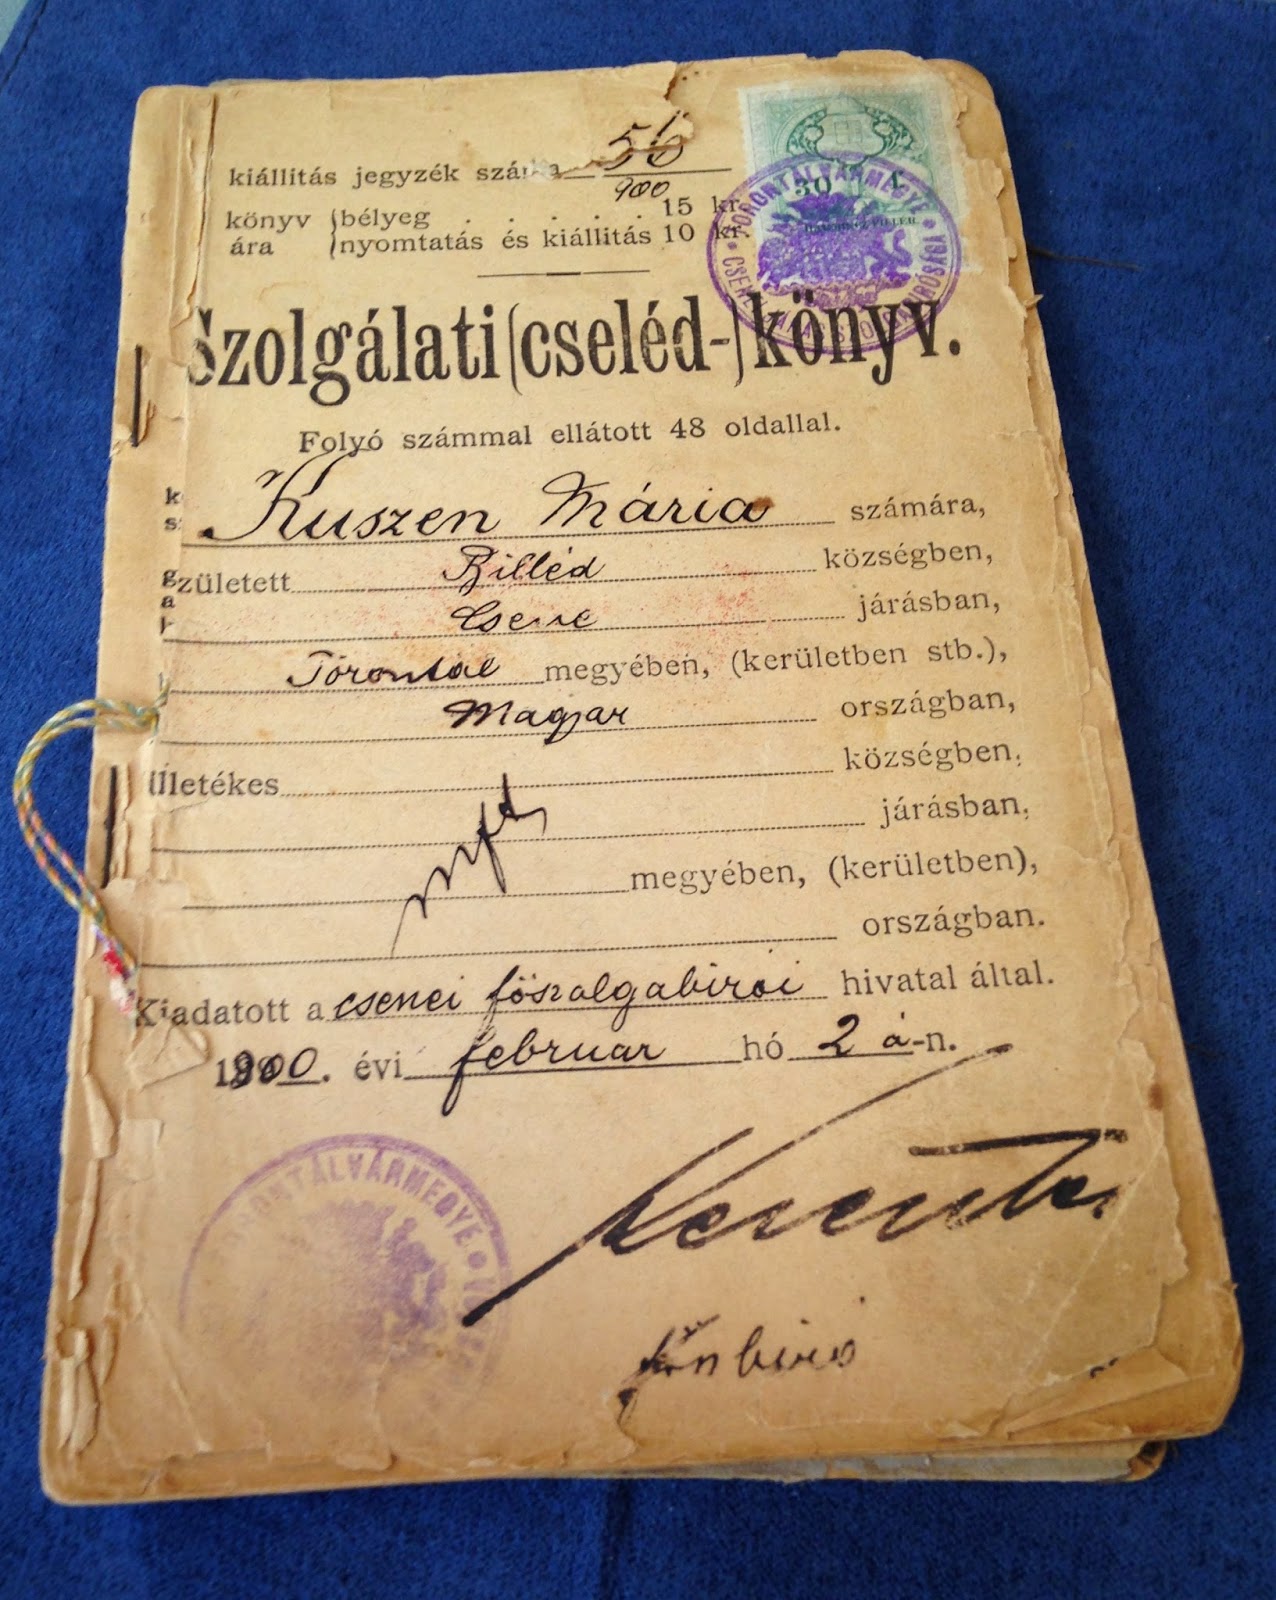 kiállitás jegyzék száma 56
900
könyv bélyeg . . . . . . 15 kr.
ára nyomtatás és kiállitás 10 kr.
TORONTÁLVÁRMEGYE
30
Szolgálati (cseléd-) könyv.
Folyó számmal ellátott 48 oldallal.
Kuszen Mária számára,
született Billéd községben,
Csene járásban,
Torontál megyében, (kerületben stb.),
Magyar országban,
Illetékes községben,
járásban,
megyében, (kerületben),
országban.
Kiadatott a csenei föszolgabirói hivatal által.
1900. évi februar hó 2 á-n.
TORONTÁLVÁRMEGYE